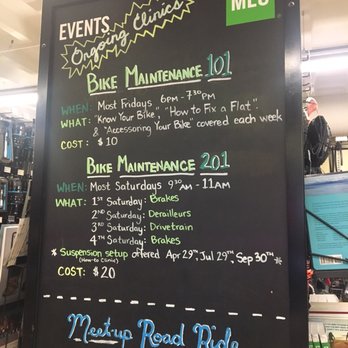 MEC
EVENTS
Ongoing Clinics
BIKE MAINTENANCE 101
WHEN: Most Fridays 6PM - 7:30PM
WHAT: "Know Your Bike", "How to Fix a Flat"
& "Accessorizing Your Bike" covered each week
COST: $10
BIKE MAINTENANCE 201
WHEN: Most Saturdays 9:30AM - 11AM
WHAT: 1ST Saturday: Brakes
2ND Saturday: Derailleurs
3RD Saturday: Drivetrain
4TH Saturday: Brakes
* Suspension setup offered Apr 29th, Jul 29th, Sep 30th *
(How-to Clinic)
COST: $20
Meet-up Road Ride